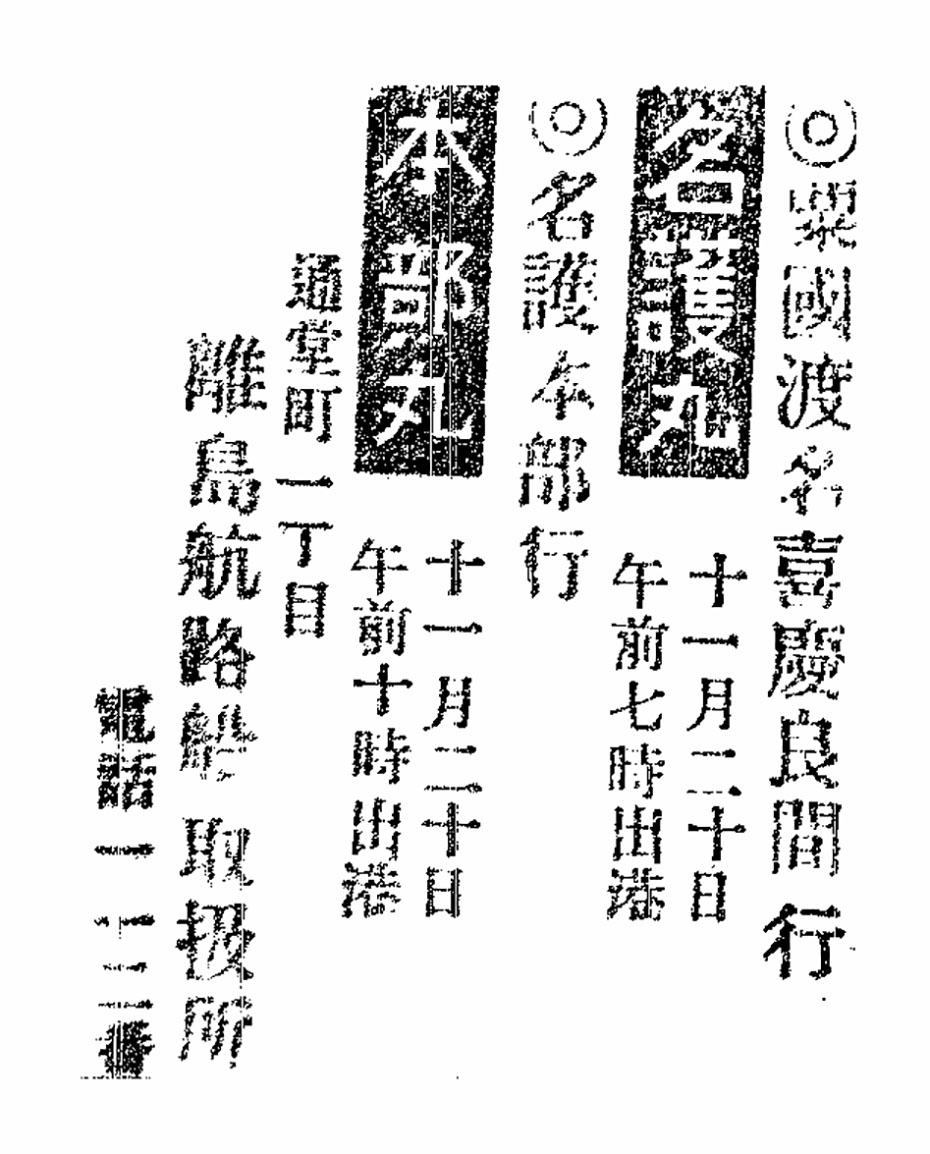 ◎粟國渡名喜慶良間行
名護丸
十一月二十日
午前七時出港
◎名護本部行
本部丸
十一月二十日
午前十時出港
通堂町一丁目
離島航路船取扱所
電話一